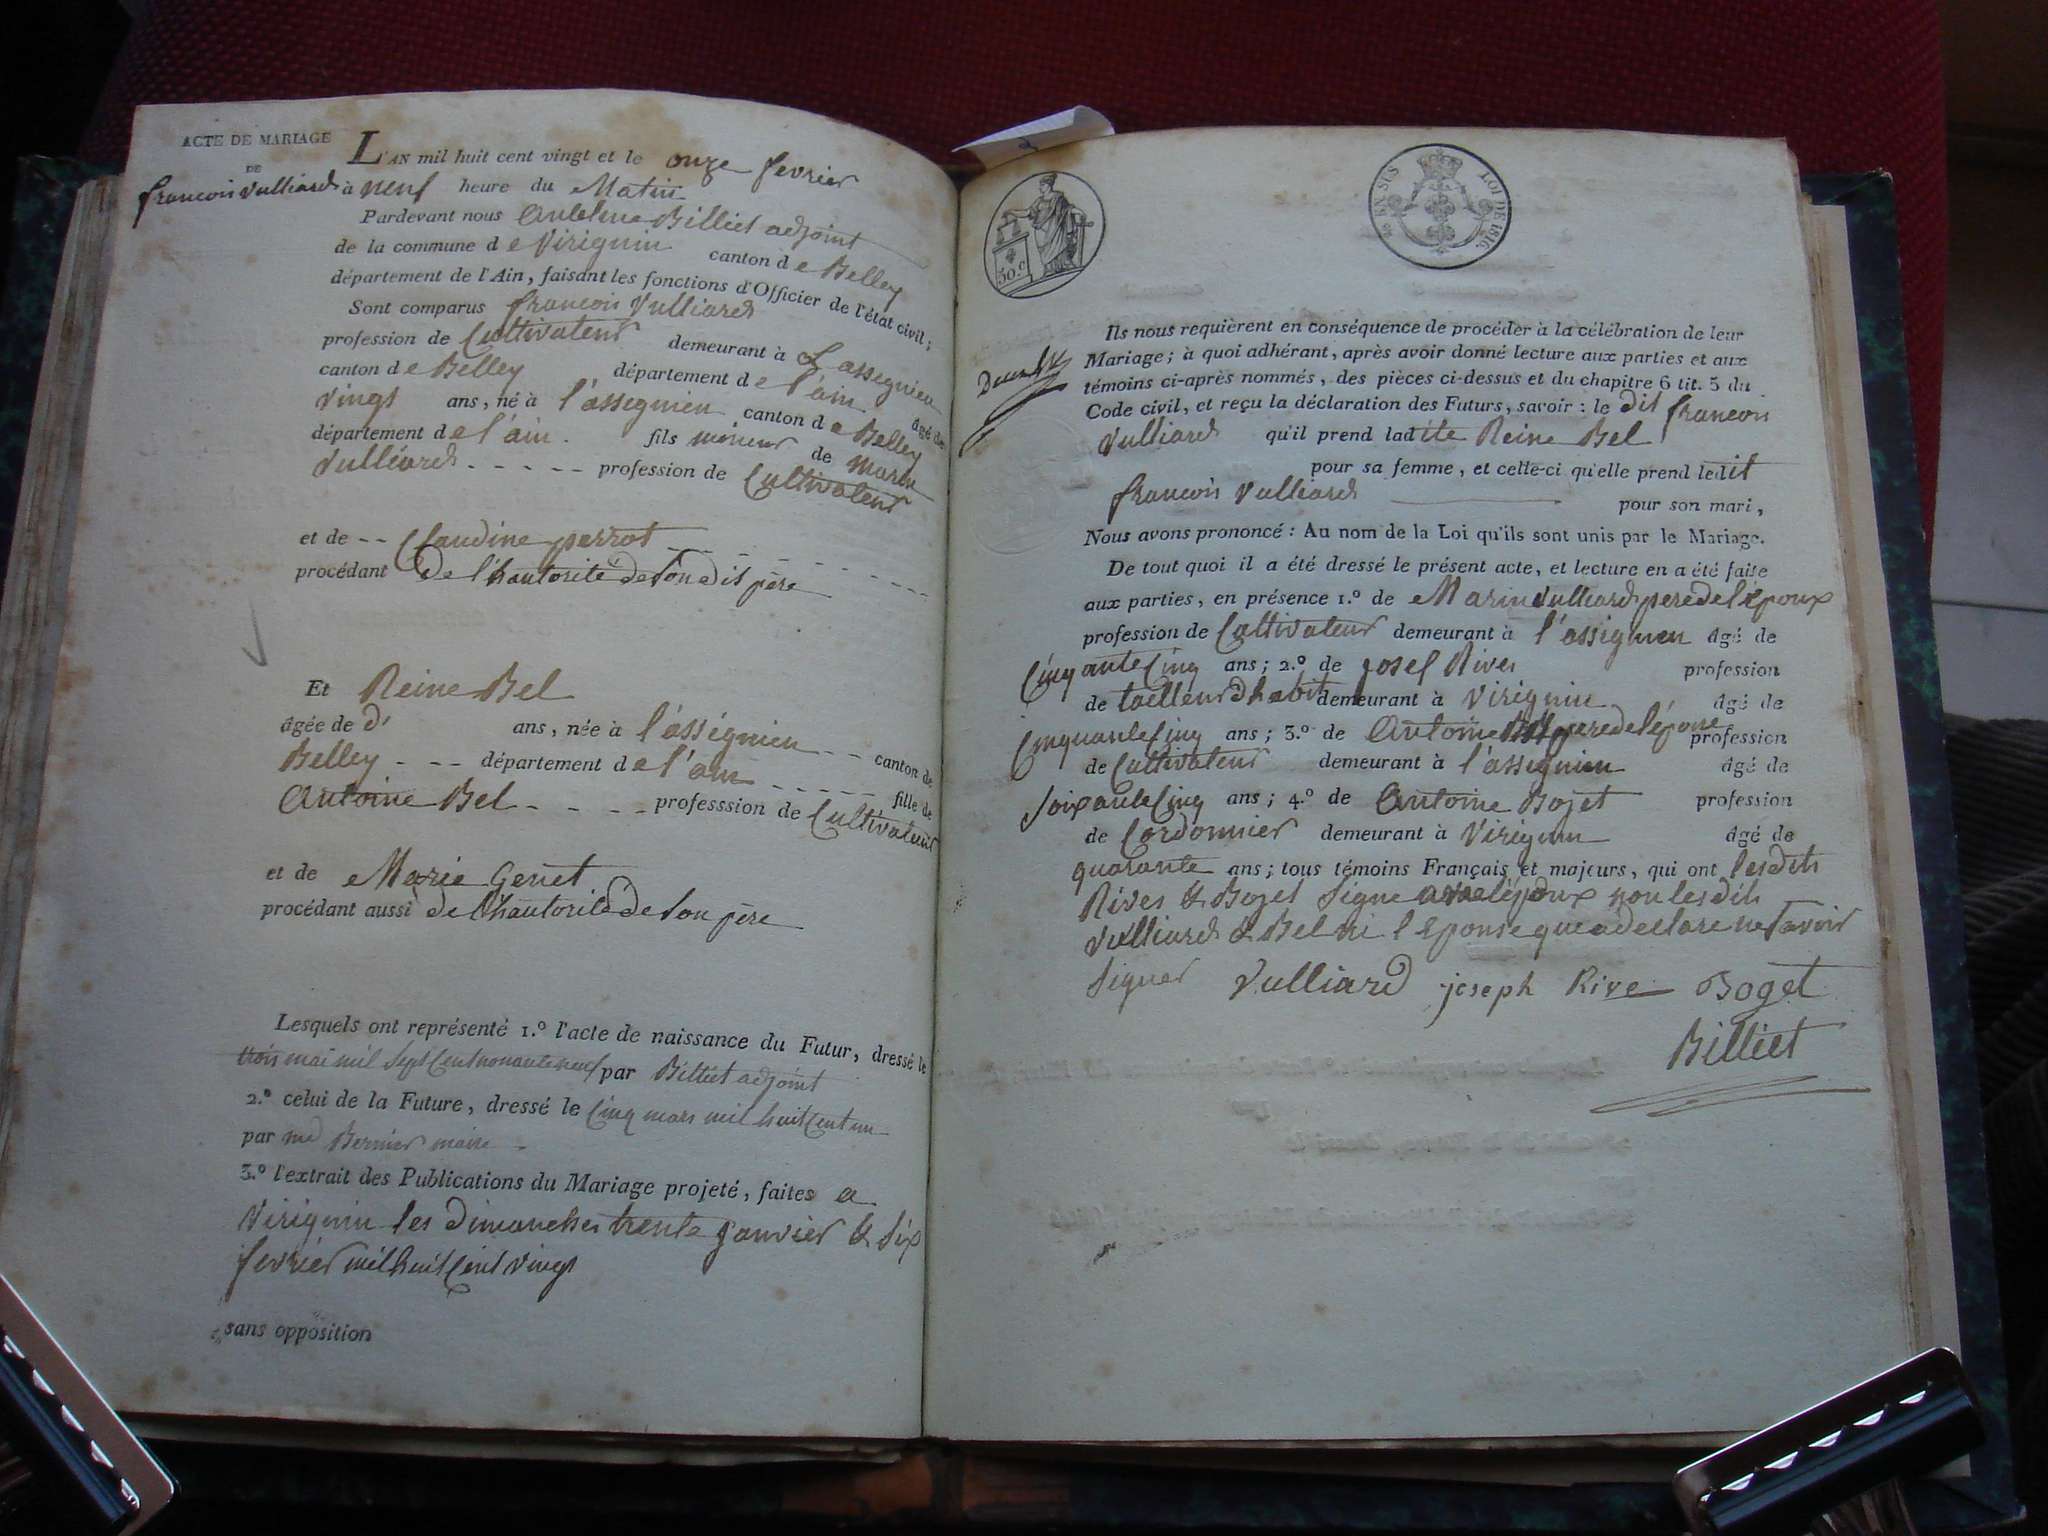 ACTE DE MARIAGE
DE
francois vulliard
L'AN mil huit cent vingt et le onze fevrier
à neuf heure du Matin
Pardevant nous Billiet adjoint
de la commune de Virignin canton de Belley
département de l'Ain, faisant les fonctions d'Officier de l'état civil;
Sont comparus francois Vulliard
profession de Cultivateur demeurant à L assegnieu
canton de Belley département de l'ain. âgé de
vingt ans, né à l'assegnieu canton de Belley
département de l'ain. fils mineur de marin
Vulliard - - - - - profession de Cultivateur
et de -- Claudine perrot
procédant de l'hautorité de Son dit père
Et Reine Bel
âgée de d' ans, née à l'asségnieu - - canton de
Belley - - - département de l'ain - - - - - fille de
Antoine Bel - - - - professsion de Cultivateur
et de Marie Genet
procédant aussi de l'hautorité de Son père
Lesquels ont représenté 1.º l'acte de naissance du Futur, dressé le
trois mai mil Sept Cent nonante neuf par Billiet adjoint
2.º celui de la Future, dressé le Cinq mars mil huit Cent un
par Bernier maire
3.º l'extrait des Publications du Mariage projeté, faites a
Virignin les dimanches trente janvier & Six
fevrier mil huit Cent vingt
sans opposition
30.c
EN SUS
LOI DE 1816.
Ils nous requièrent en conséquence de procéder à la célébration de leur
Mariage; à quoi adhérant, après avoir donné lecture aux parties et aux
témoins ci-après nommés, des pièces ci-dessus et du chapitre 6 tit. 5 du
Code civil, et reçu la déclaration des Futurs, savoir: le dit francois
Vulliard qu'il prend ladite Reine Bel
pour sa femme, et celle-ci qu'elle prend ledit
francois Vulliard pour son mari,
Nous avons prononcé: Au nom de la Loi qu'ils sont unis par le Mariage.
De tout quoi il a été dressé le présent acte, et lecture en a été faite
aux parties, en présence 1.º de Marin vulliard pere de l'époux
profession de Cultivateur demeurant à l'assignieu âgé de
Cinquante Cinq ans; 2.º de Josef Rives profession
de tailleur d'habit demeurant à Virignin âgé de
Cinquante Cinq ans; 3.º de Antoine Bel pere de l'épouse profession
de Cultivateur demeurant à l'assignieu âgé de
Soixante Cinq ans; 4.º de Antoine Bojet profession
de Cordonnier demeurant à Virignin âgé de
quarante ans; tous témoins Français et majeurs, qui ont lesdits
Rives & Bozet Signe avec l'époux non lesdits
vulliard & Bel ni l'Epouse que a declare ne Savoir
Signer Vulliard joseph Rive Boget
Billiet